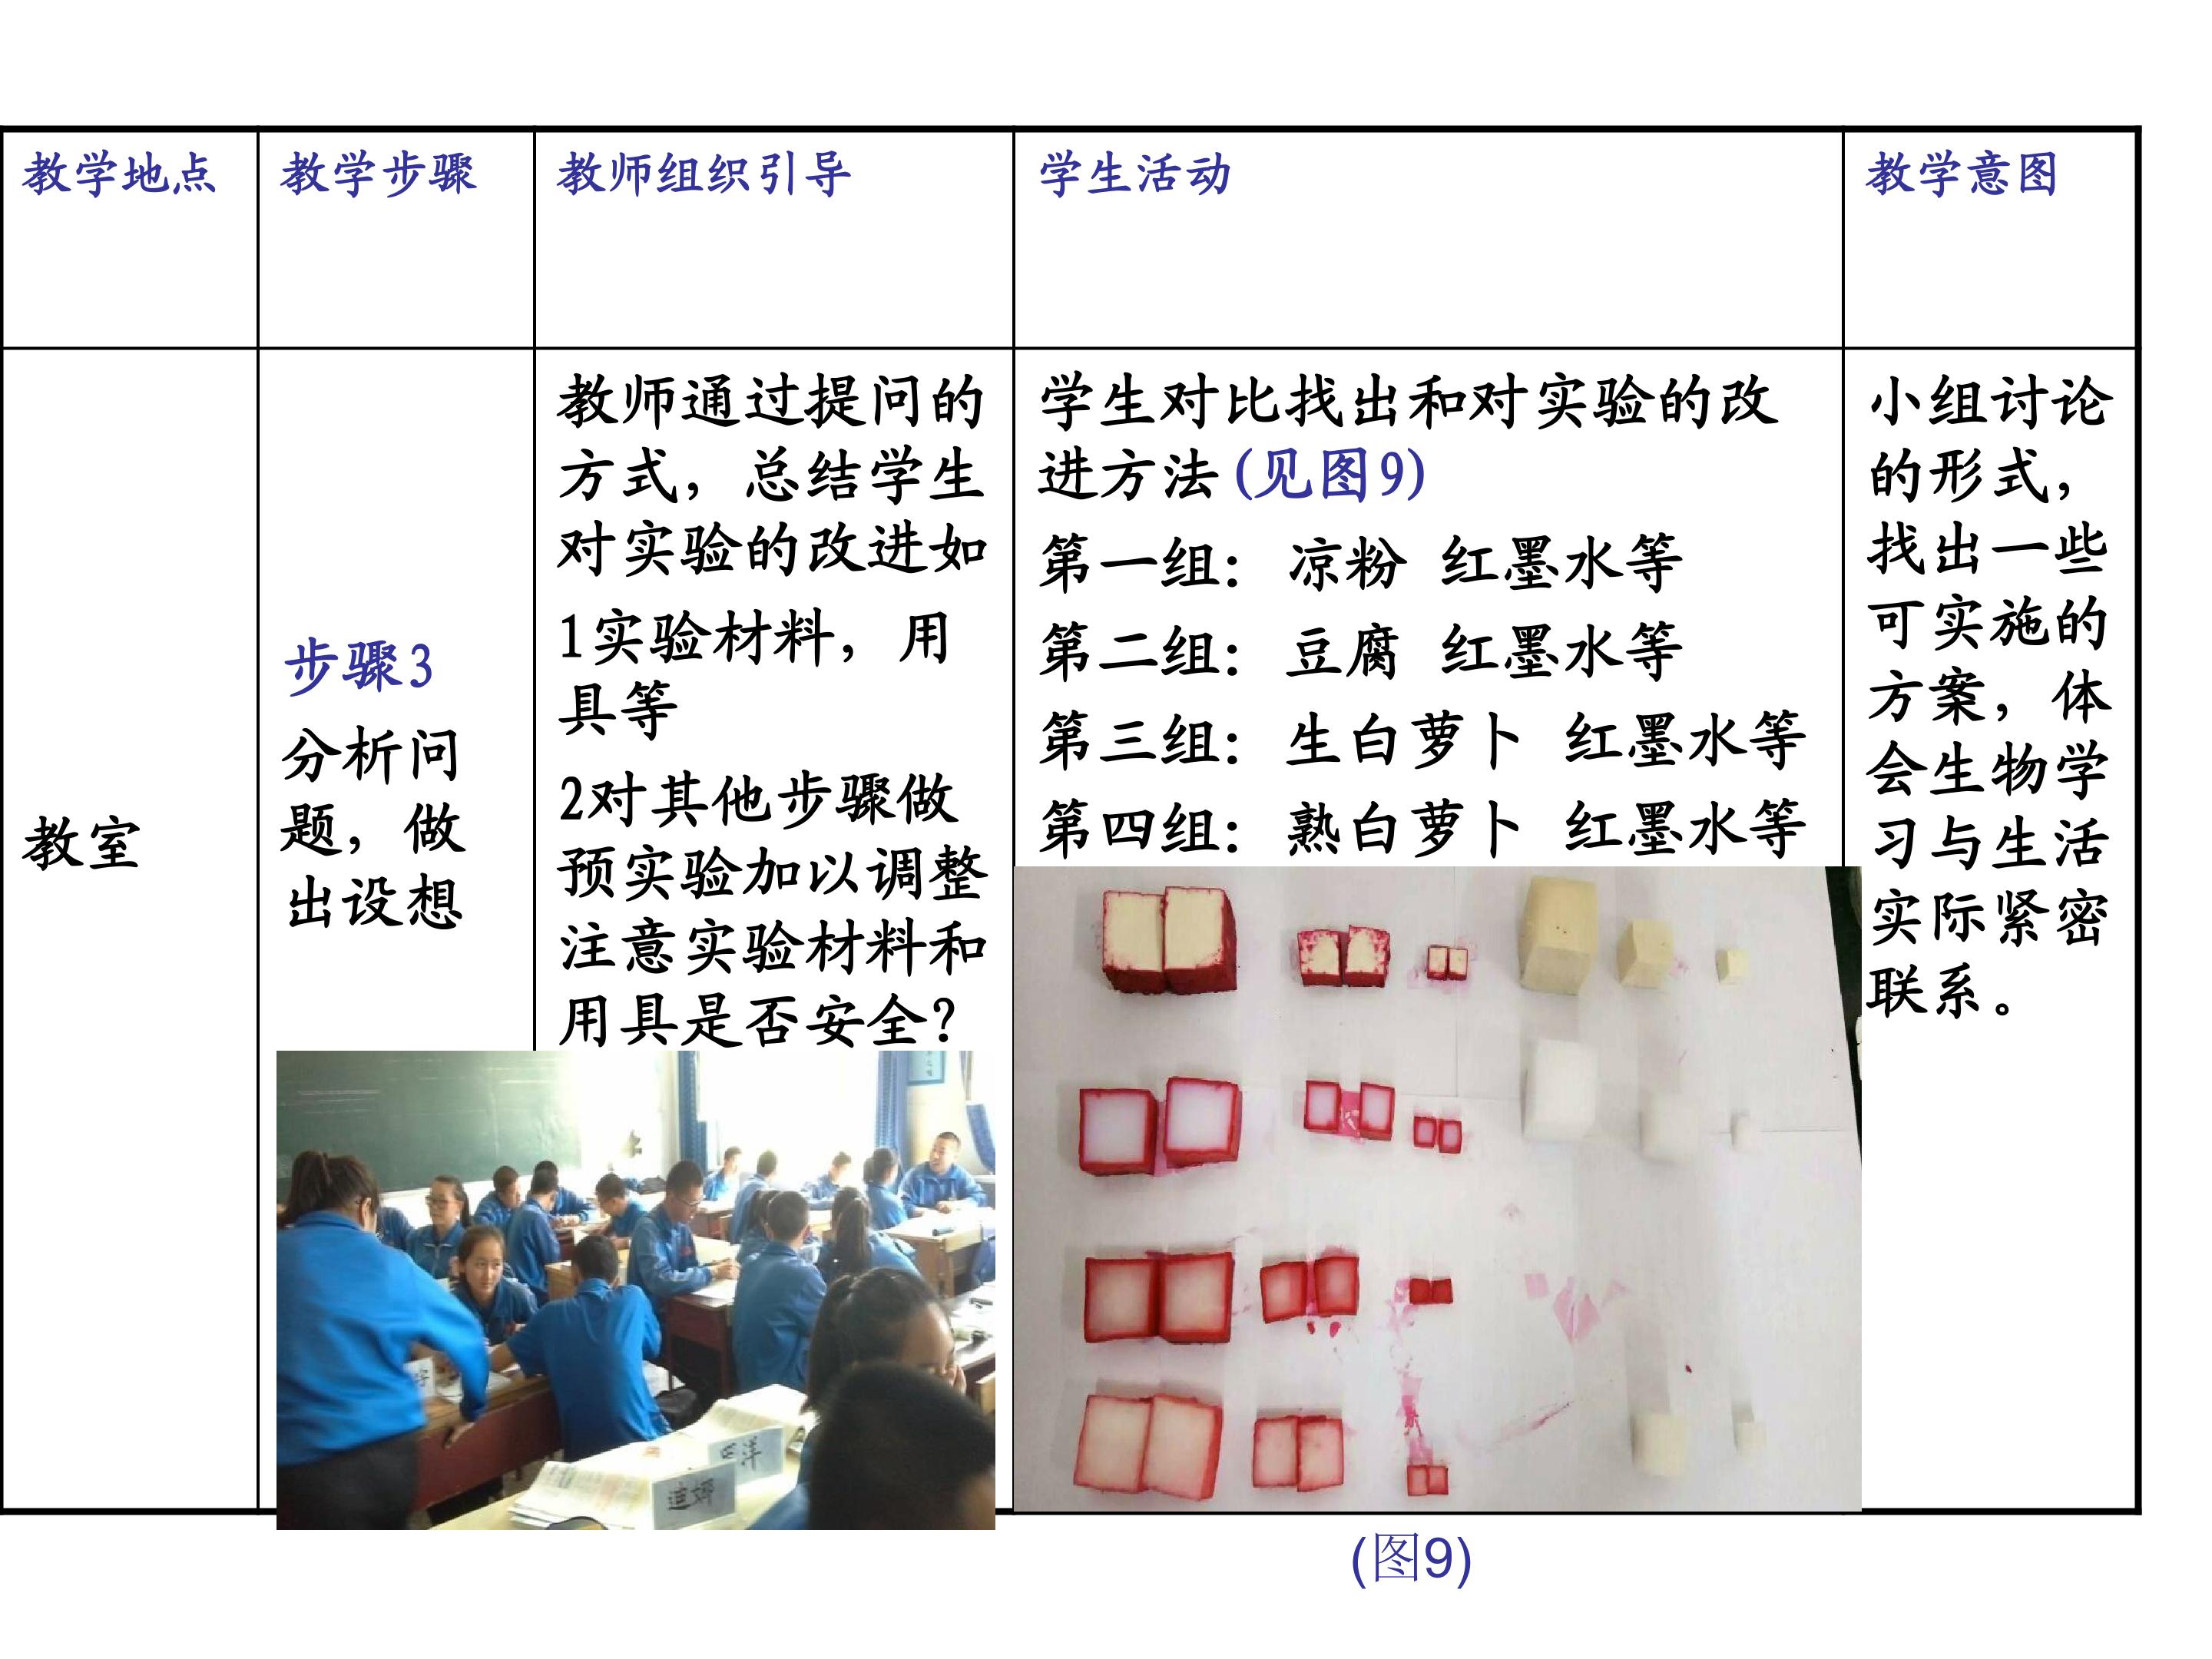 教学地点
教学步骤
教师组织引导
学生活动
教学意图
教室
步骤3
分析问
题，做
出设想
教师通过提问的
方式，总结学生
对实验的改进如
1实验材料，用
具等
2对其他步骤做
预实验加以调整
注意实验材料和
用具是否安全？
学生对比找出和对实验的改
进方法(见图9)
第一组： 凉粉 红墨水等
第二组： 豆腐 红墨水等
第三组： 生白萝卜 红墨水等
第四组： 熟白萝卜 红墨水等
小组讨论
的形式，
找出一些
可实施的
方案，体
会生物学
习与生活
实际紧密
联系。
(图9)